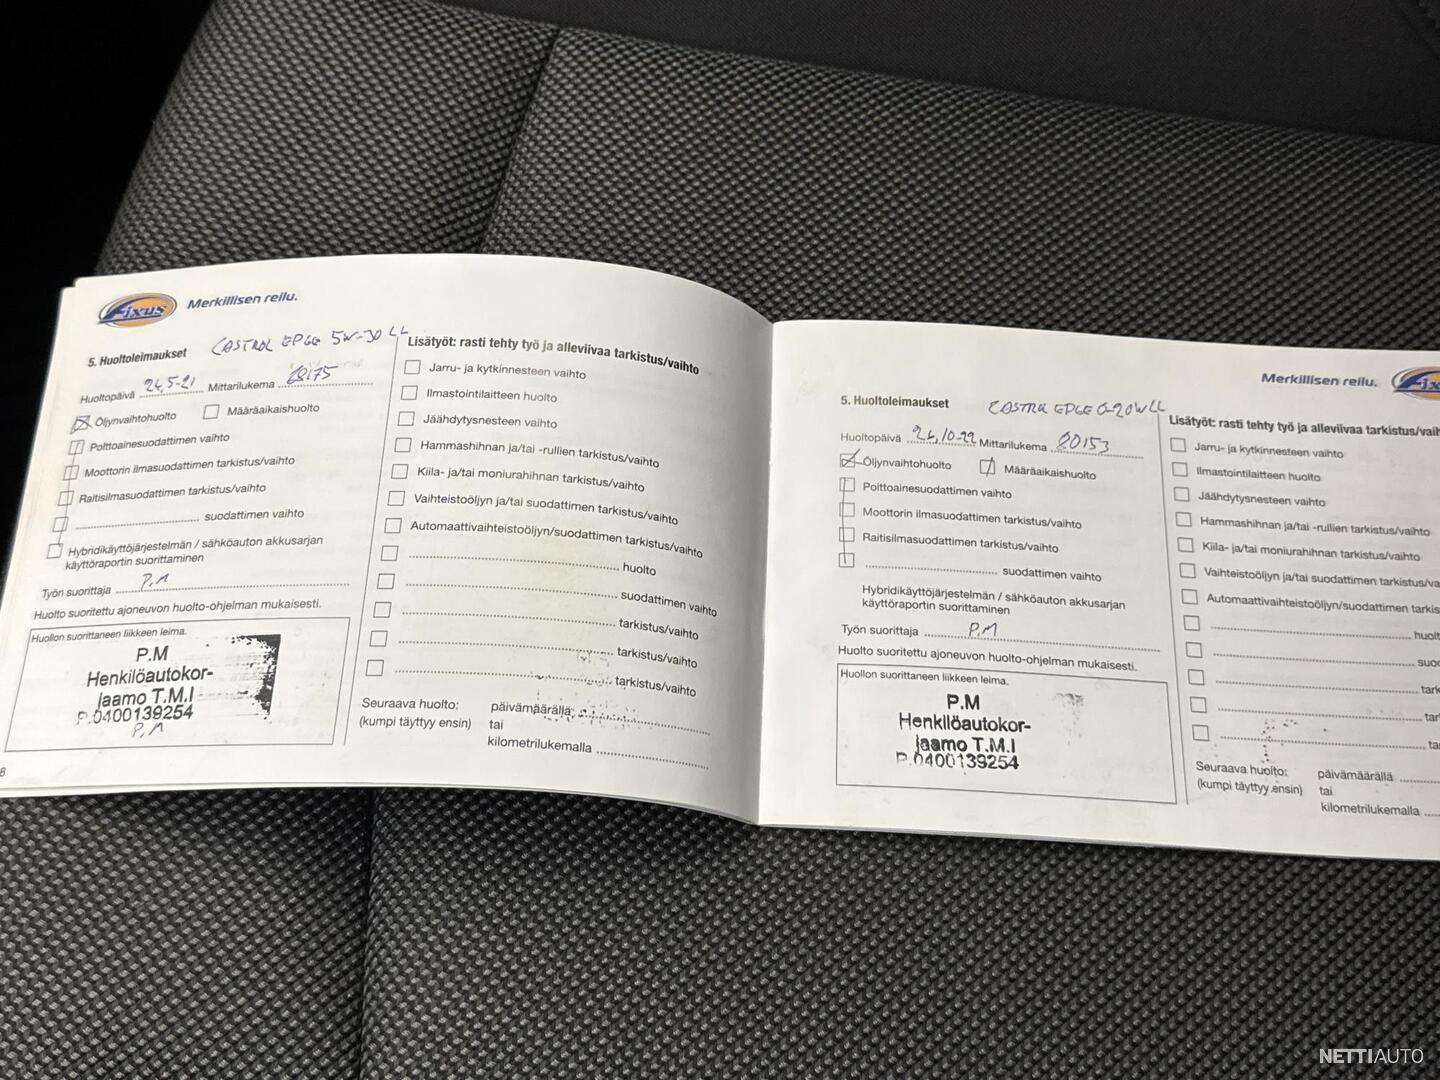 Fixus
Merkillisen reilu.
5. Huoltoleimaukset CASTROL EDGE 5W-30 LL
Huoltopäivä 24.5-21 Mittarilukema
Öljynvaihtohuolto Määräaikaishuolto
Polttoainesuodattimen vaihto
Moottorin ilmasuodattimen tarkistus/vaihto
Raitisilmasuodattimen tarkistus/vaihto
suodattimen vaihto
Hybridikäyttöjärjestelmän / sähköauton akkusarjan
käyttöraportin suorittaminen
Työn suorittaja P.M
Huolto suoritettu ajoneuvon huolto-ohjelman mukaisesti.
Huollon suorittaneen liikkeen leima.
P.M
Henkilöautokor-
jaamo T.M.I
P.0400139254
P.M
8
Lisätyöt: rasti tehty työ ja alleviivaa tarkistus/vaihto
Jarru- ja kytkinnesteen vaihto
Ilmastointilaitteen huolto
Jäähdytysnesteen vaihto
Hammashihnan ja/tai -rullien tarkistus/vaihto
Kiila- ja/tai moniurahihnan tarkistus/vaihto
Vaihteistoöljyn ja/tai suodattimen tarkistus/vaihto
Automaattivaihteistoöljyn/suodattimen tarkistus/vaihto
huolto
suodattimen vaihto
tarkistus/vaihto
tarkistus/vaihto
tarkistus/vaihto
Seuraava huolto: päivämäärällä
(kumpi täyttyy ensin) tai
kilometrilukemalla
Merkillisen reilu.
5. Huoltoleimaukset CASTROL EDGE 0-20W LL
Huoltopäivä Mittarilukema 80153
Öljynvaihtohuolto Määräaikaishuolto
Polttoainesuodattimen vaihto
Moottorin ilmasuodattimen tarkistus/vaihto
Raitisilmasuodattimen tarkistus/vaihto
suodattimen vaihto
Hybridikäyttöjärjestelmän / sähköauton akkusarjan
käyttöraportin suorittaminen
Työn suorittaja P.M
Huolto suoritettu ajoneuvon huolto-ohjelman mukaisesti.
Huollon suorittaneen liikkeen leima.
P.M
Henkilöautokor-
jaamo T.M.I
P.0400139254
Lisätyöt: rasti tehty työ ja alleviivaa tarkistus/vaih
Jarru- ja kytkinnesteen vaihto
Ilmastointilaitteen huolto
Jäähdytysnesteen vaihto
Hammashihnan ja/tai -rullien tarkistus/vaihto
Kiila- ja/tai moniurahihnan tarkistus/vaihto
Vaihteistoöljyn ja/tai suodattimen tarkistus/va
Automaattivaihteistoöljyn/suodattimen tarkis
huolt
suo
tark
tar
ta
Seuraava huolto: päivämäärällä
(kumpi täyttyy ensin) tai
kilometrilukemalla
NETTIAUTO